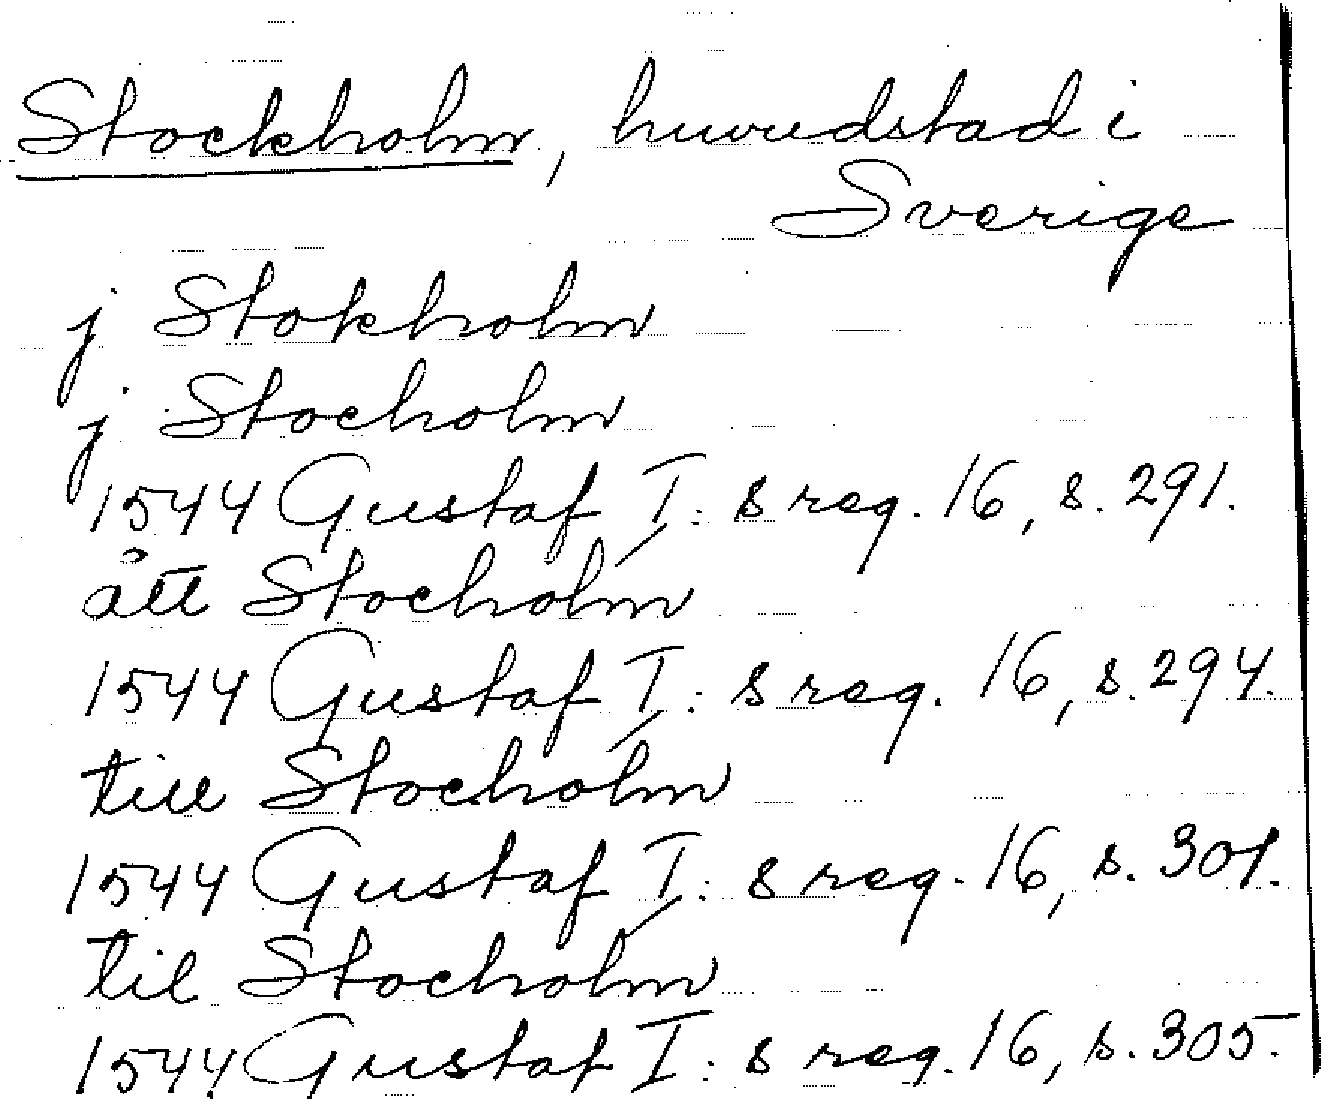 Stockholm, huvudstad i
Sverige
j Stokholm
j Stocholm
1544 Gustaf I: s reg. 16, s. 291.
ått Stocholm
1544 Gustaf I: s reg. 16, s. 294.
till Stocholm
1544 Gustaf I: s reg. 16, s. 301.
til Stocholm
1544 Gustaf I: s reg. 16, s. 305.